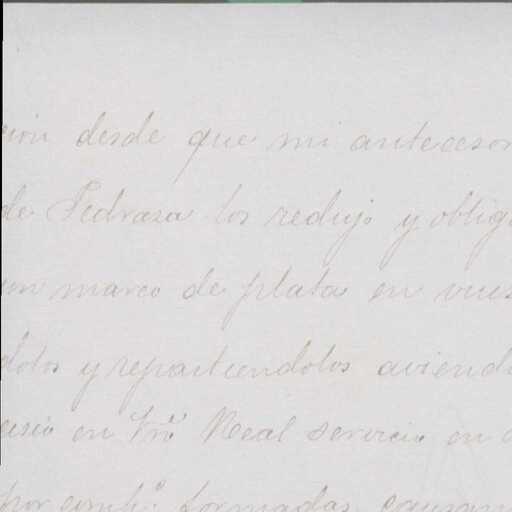 cion desde que mi antecesor
de Pedraza los redujo y oblig
un marco de plata en vues
dolos y repartiendolos aviend
en Vrô Real servicio en
por comp.ª formadas